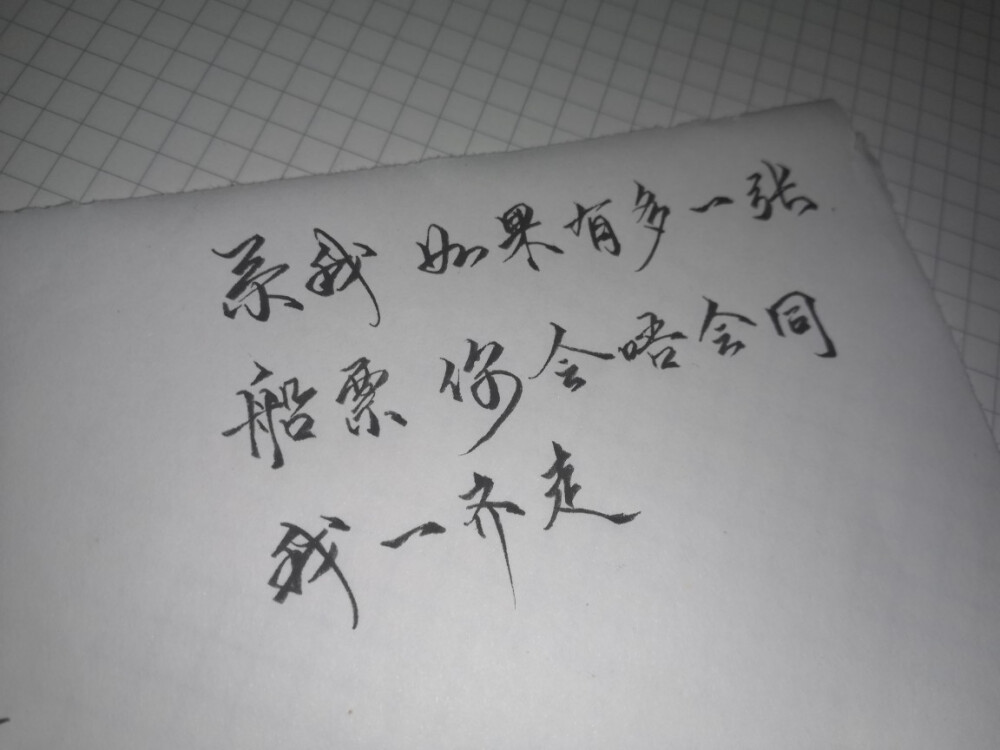 系我 如果有多一张
船票 你会唔会同
我一齐走